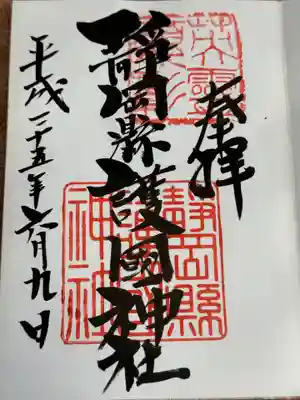 奉拝
靜岡縣護國神社
平成二十五年六月九日
英靈顕彰
靜岡縣護國神社